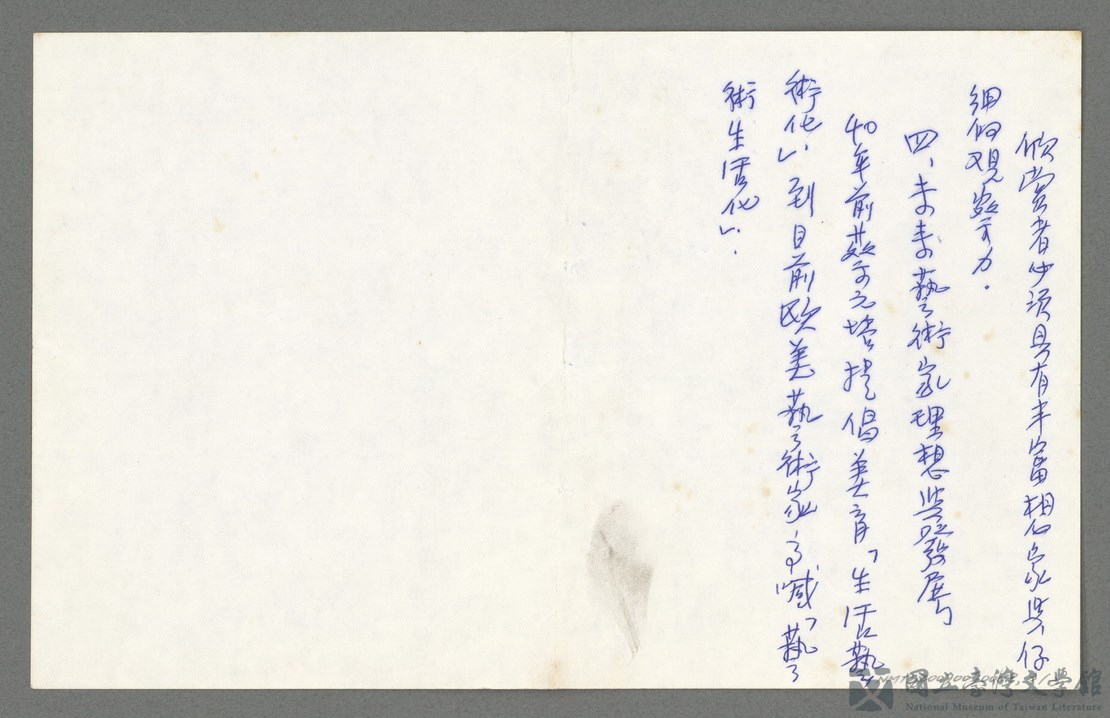 欣賞者必須具有丰富想象与仔
細的观察力.
四、未来藝術家理想与發展
40年前蔡元培提倡美育「生活藝
術化」,到目前欧美藝術家高喊「藝
術生活化」.
國立臺灣文學館
National Museum of Taiwan Literature